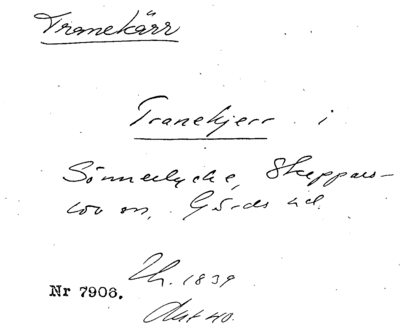 Tranekärr
Tranekjerr i
Sönnerlycke, Skeppars-
lov sn, Gärds hd.
Lh. 1839
Nr 7908.
Akt 40.